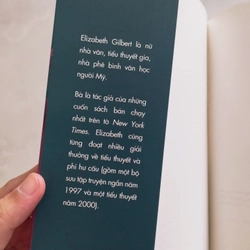 Elizabeth Gilbert là nữ
nhà văn, tiểu thuyết gia,
nhà phê bình văn học
người Mỹ.
Bà là tác giả của những
cuốn sách bán chạy
nhất trên tờ New York
Times. Elizabeth cũng
từng đoạt nhiều giải
thưởng về tiểu thuyết và
phi hư cấu (gồm một bộ
sưu tập truyện ngắn năm
1997 và một tiểu thuyết
năm 2000).